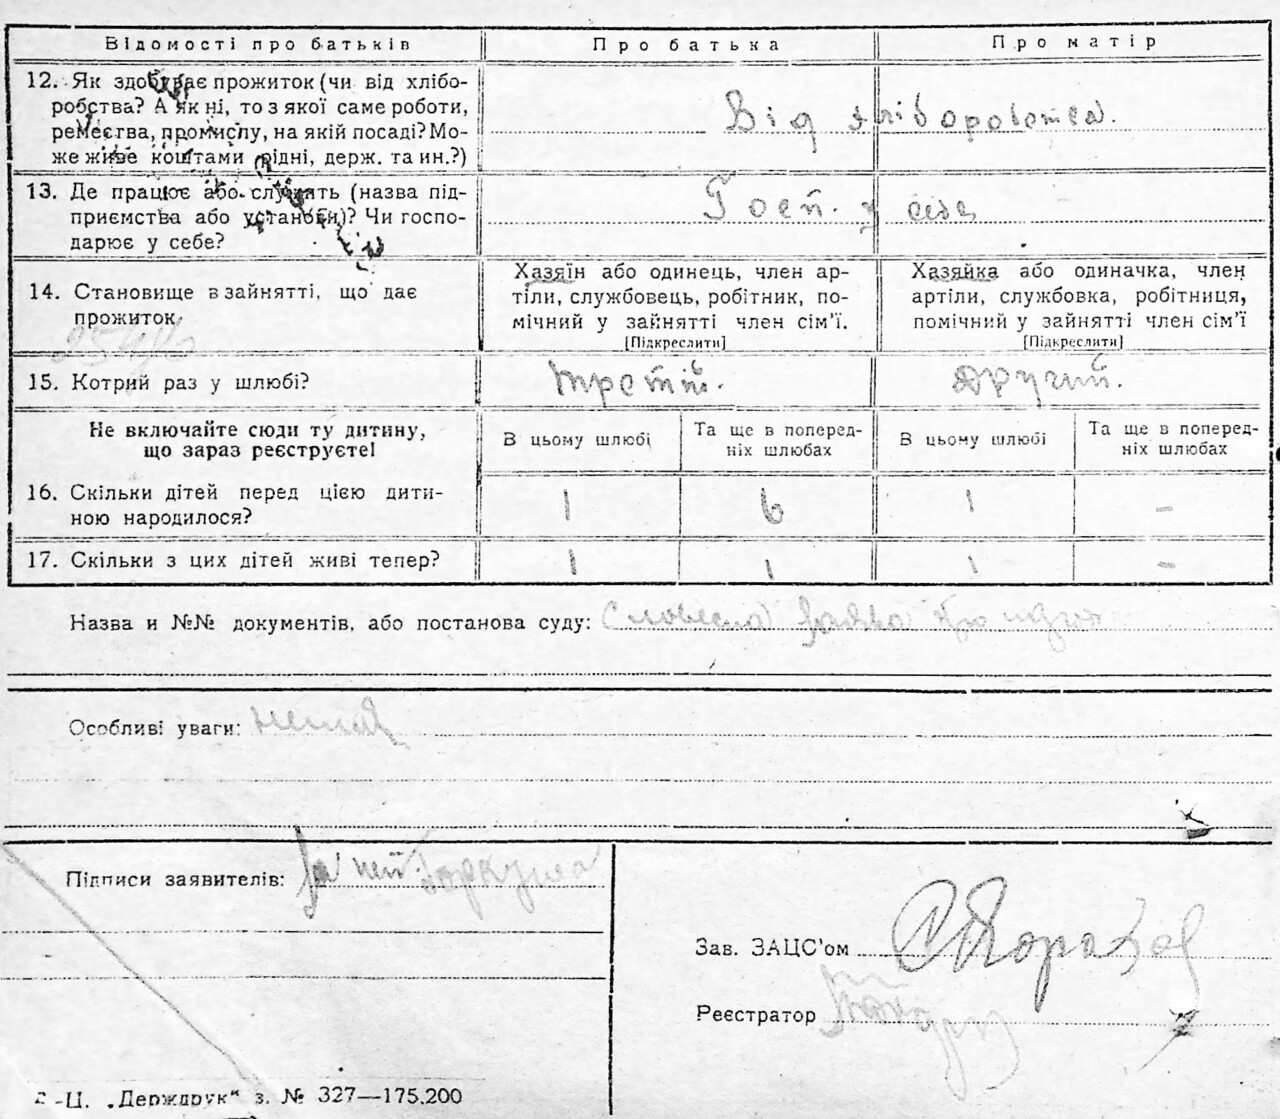 Відомості про батьків Про батька Про матір
12. Як здобуває прожиток (чи від хлібо-
робства? А як ні, то з якої саме роботи,
ремества, промислу, на якій посаді? Мо-
же живе коштами рідні, держ. та ин.?)
Від хліборобства.
13. Де працює або служить (назва під-
приємства або установи)? Чи госпо-
дарює у себе?
Госп. у себе
14. Становище в зайнятті, що дає
прожиток
Хазяїн або одинець, член ар-
тіли, службовець, робітник, по-
мічний у зайнятті член сім'ї.
[Підкреслити]
Хазяйка або одиначка, член
артіли, службовка, робітниця,
помічний у зайнятті член сім'ї
[Підкреслити]
15. Котрий раз у шлюбі? третій. другий.
Не включайте сюди ту дитину,
що зараз реєструєте!
В цьому шлюбі
Та ще в поперед-
ніх шлюбах
В цьому шлюбі
Та ще в поперед-
ніх шлюбах
16. Скільки дітей перед цією дити-
ною народилося?
1 6 1 -
17. Скільки з цих дітей живі тепер? 1 1 1 -
Назва и №№ документів, або постанова суду: Словесна заява про
Особливі уваги: нема
Підписи заявителів:
Зав. ЗАЦС'ом
Реєстратор
-Ц. „Держдрук" з. № 327—175.200